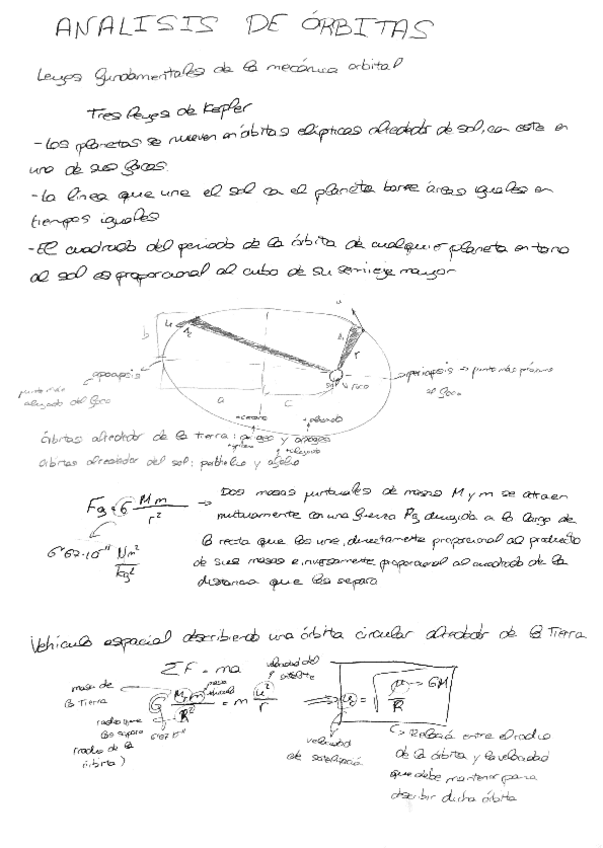 ANALISIS DE ÓRBITAS
Leyes fundamentales de la mecánica orbital
Tres leyes de Kepler
- Los planetas se mueven en órbitas elípticas alrededor de sol, con este en
uno de sus focos.
- La linea que une el sol con el planeta barre áreas iguales en
tiempos iguales
- El cuadrado del periodo de la órbita de cualquier planeta en torno
al sol es proporcional al cubo de su semieje mayor
b
apoapsis
punto más
alejado del foco
a
c
Sol
foco
r
periapsis → punto más próximo
foco
+cercano
órbitas alrededor de la tierra:
y apogeo
órbitas alrededor del sol: perihelio y afelio
Fg = G Mm / r²
→ Dos masas puntuales de masas M y m se atraen
mutuamente con una fuerza Fg dirigida a lo largo de
la recta que las une, directamente proporcional al producto
de sus masas e inversamente proporcional al cuadrado de la
distancia que las separa
6'67·10⁻¹¹ Nm²/kg²
Vehículo espacial describiendo una órbita circular alrededor de la Tierra
ΣF = ma
velocidad del
satélite
masa de
la Tierra
G Mm / R² = m u² / r
⇒ u = √ μ / R → GM
radio que
los separa
(radio de la
órbita)
velocidad
de satelización
→ Relación entre el radio
de la órbita y la velocidad
que debe mantener para
describir dicha órbita